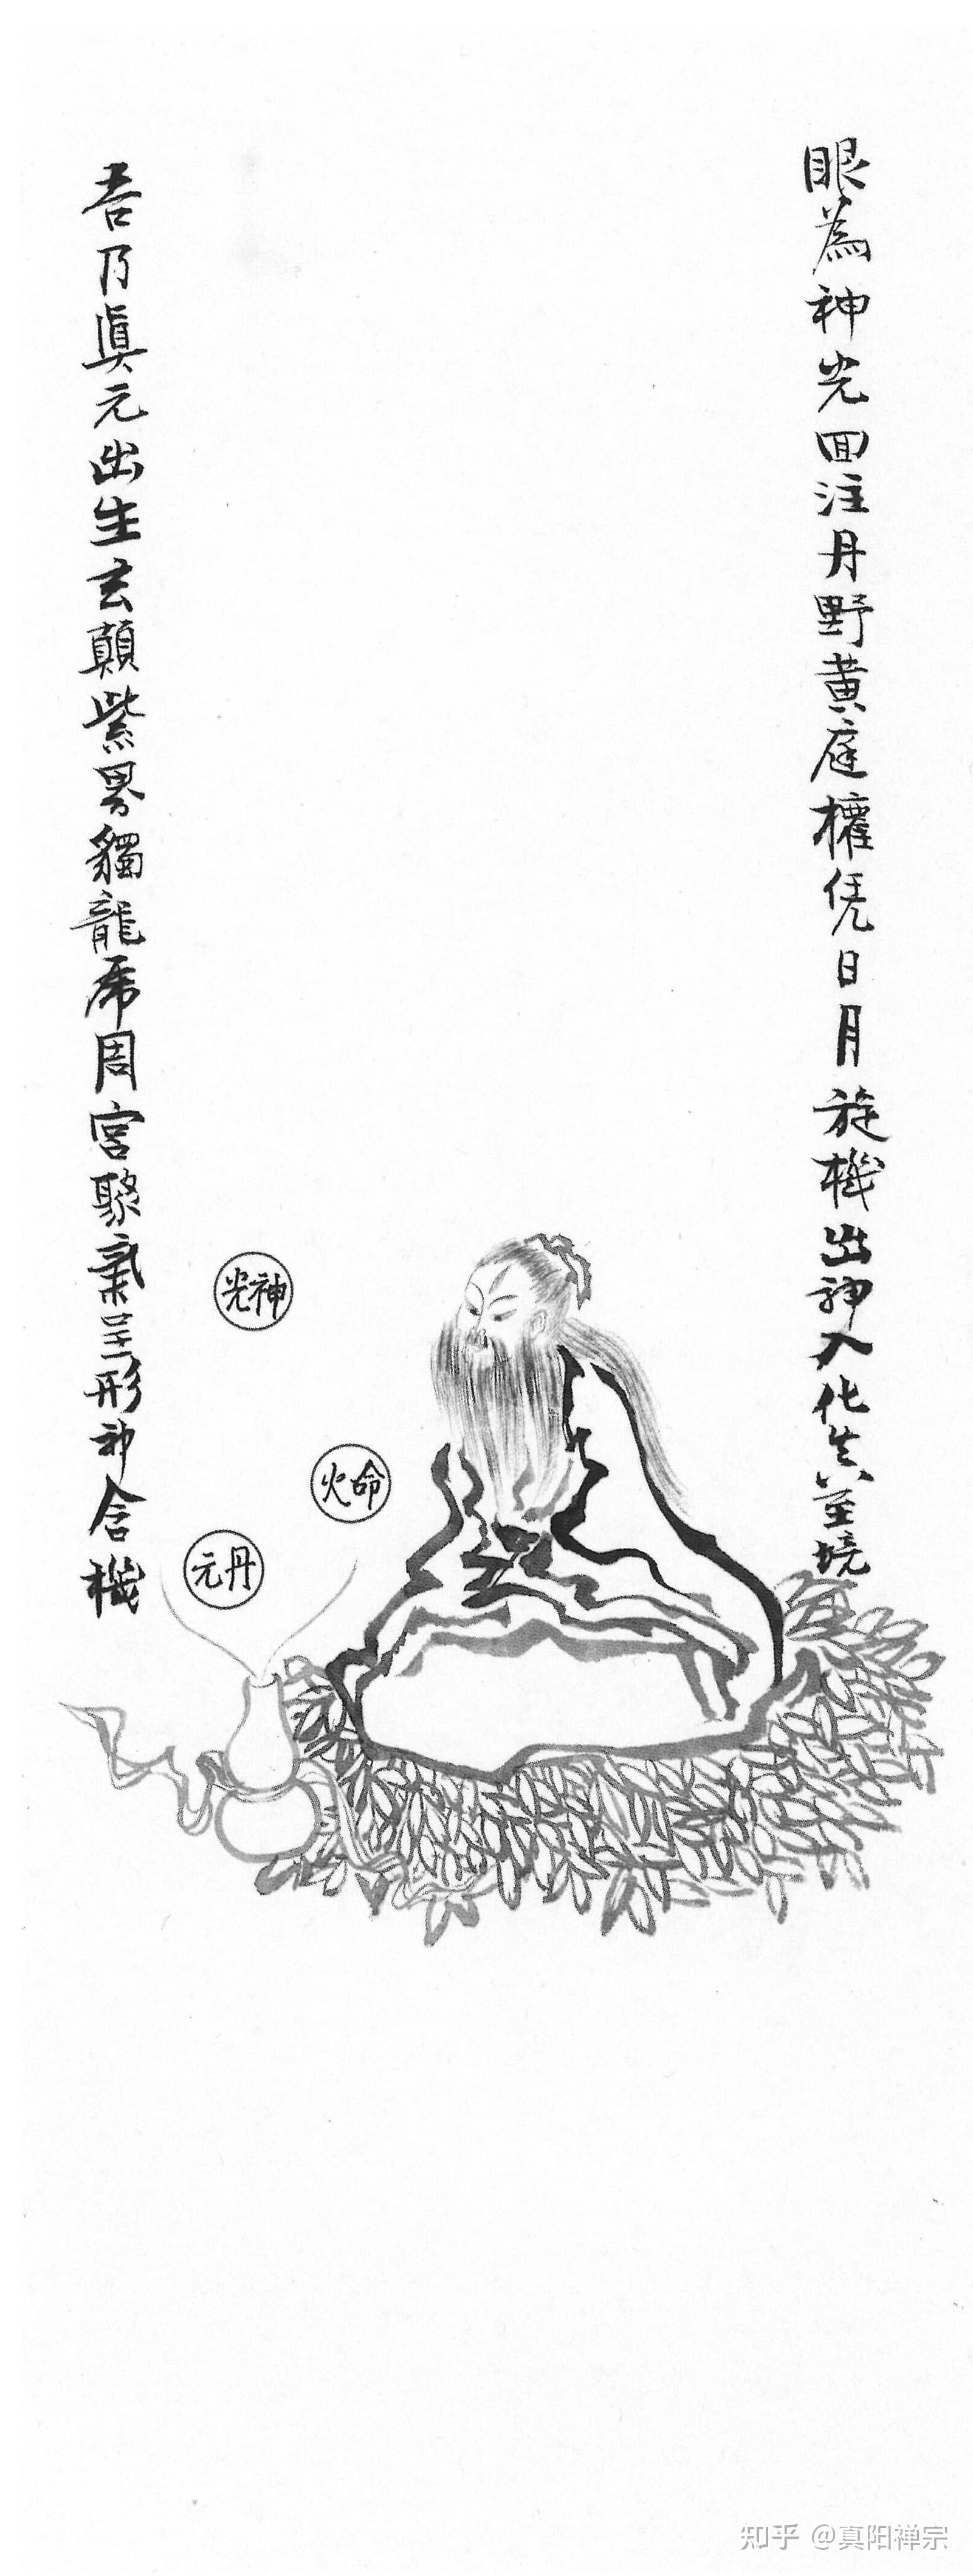 眼為神光回注丹野黃庭權凭日月旋機出神入化生至境
吾乃真元出生玄顛紫界獨龍席周宮聚氣呈形神含機
神光
命火
丹元
知乎 @真阳禅宗